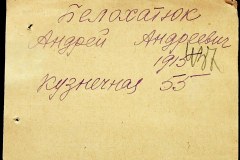 Белохатюк
Андрей Андреевич
1915
Кузнечная 55